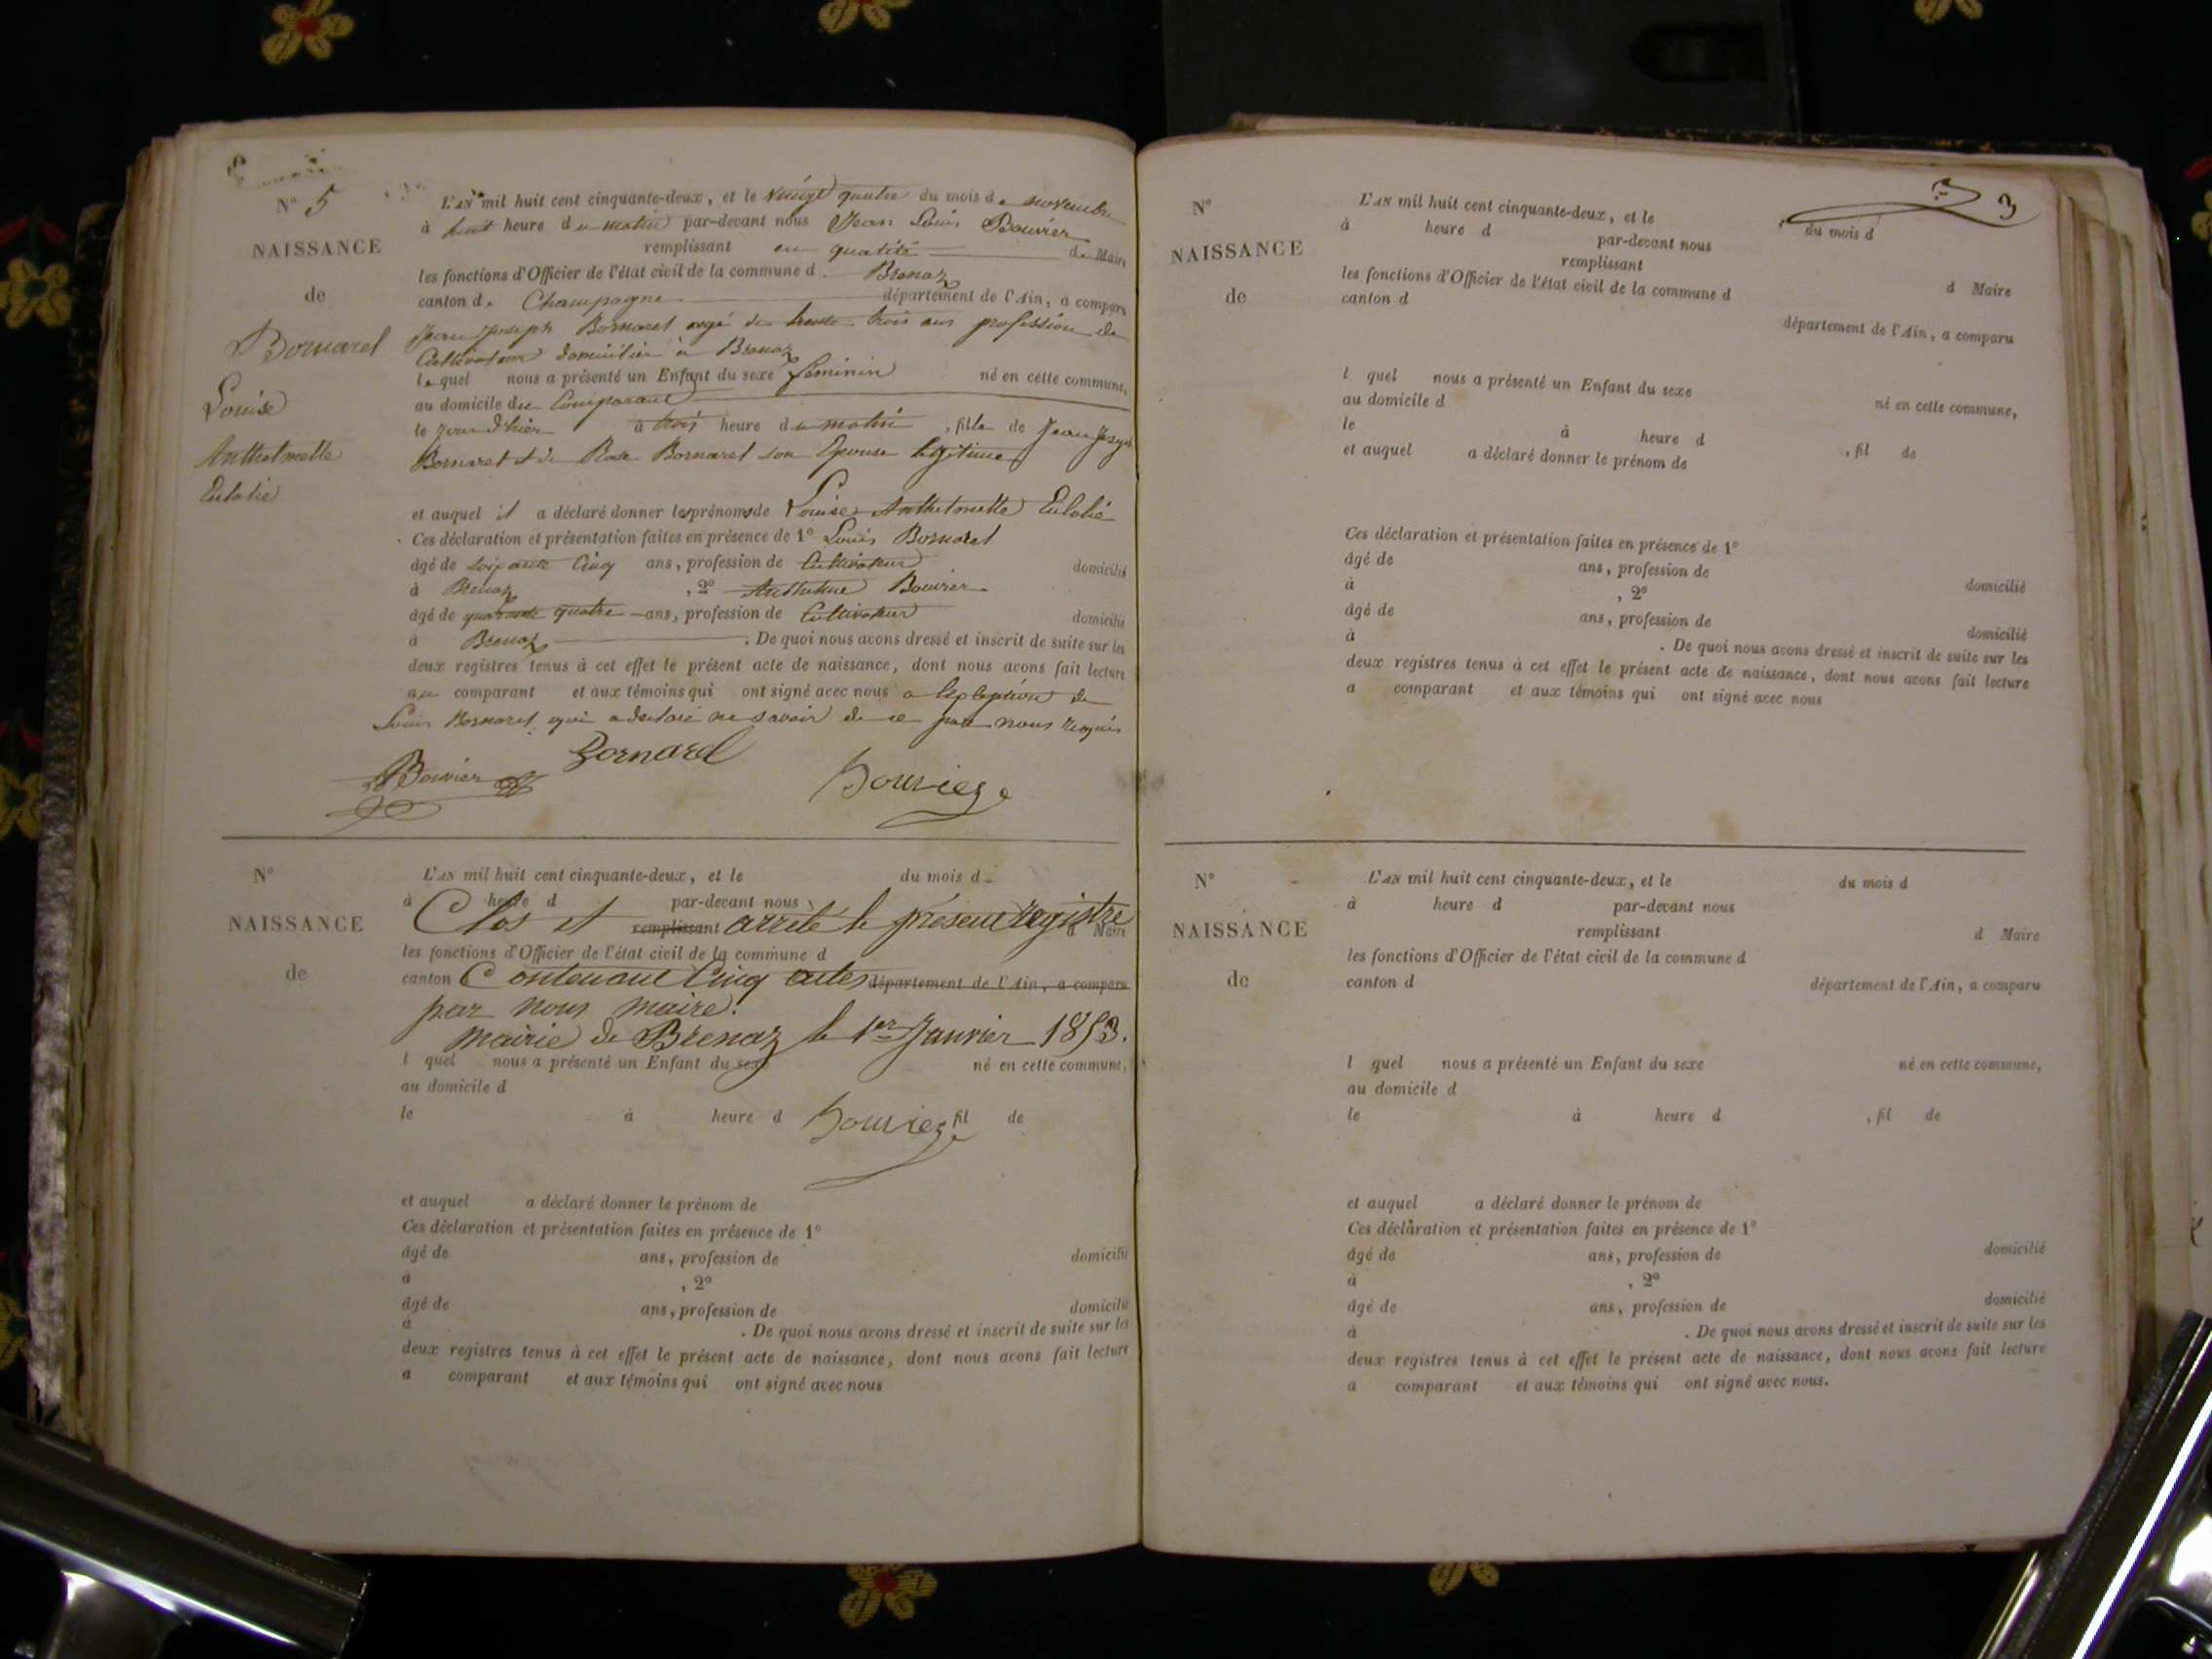 N° 5
NAISSANCE
de
Bornarel
Louise
Anthelmette
Eulalie
L'AN mil huit cent cinquante-deux, et le vingt quatre du mois de novembre
à huit heure du matin par-devant nous Jean Louis Bouvier
remplissant en qualité de Maire
les fonctions d'Officier de l'état civil de la commune d Brenaz
canton de Champagne département de l'Ain, a comparu
Jean Joseph Bornarel agé de trente trois ans profession de
Cultivateur domicilié à Brenaz
lequel nous a présenté un Enfant du sexe féminin né en cette commune,
au domicile du Comparant
le jour d'hier à trois heure du matin, fille de Jean Joseph
Bornarel et de Rose Bornarel son Epouse légitime
et auquel il a déclaré donner les prénoms de Louise Anthelmette Eulalie
Ces déclaration et présentation faites en présence de 1° Louis Bornarel
âgé de soixante Cinq ans, profession de Cultivateur domicilié
à Brenaz, 2° Anthelme Bouvier
âgé de quarante quatre ans, profession de Cultivateur domicilié
à Brenaz. De quoi nous avons dressé et inscrit de suite sur les
deux registres tenus à cet effet le présent acte de naissance, dont nous avons fait lecture
au comparant et aux témoins qui ont signé avec nous a lexception de
Louis Bornarel qui a declaré ne savoir de ce par nous requis
Bouvier Bornarel Bouvier
N°
NAISSANCE
de
L'AN mil huit cent cinquante-deux, et le du mois d
à heure d par-devant nous
Clos et remplissant arrêté le présent registre d Maire
les fonctions d'Officier de l'état civil de la commune d
canton Contenant Cinq actes département de l'Ain, a comparu
par nous maire.
Mairie de Brenaz le 1er Janvier 1853.
l quel nous a présenté un Enfant du sexe né en cette commune,
au domicile d
le à heure d Bouvier fil de
et auquel a déclaré donner le prénom de
Ces déclaration et présentation faites en présence de 1°
âgé de ans, profession de domicilié
à , 2°
âgé de ans, profession de domicilié
à . De quoi nous avons dressé et inscrit de suite sur les
deux registres tenus à cet effet le présent acte de naissance, dont nous avons fait lecture
a comparant et aux témoins qui ont signé avec nous
3
N°
NAISSANCE
de
L'AN mil huit cent cinquante-deux, et le du mois d
à heure d par-devant nous
remplissant d Maire
les fonctions d'Officier de l'état civil de la commune d
canton d département de l'Ain, a comparu
l quel nous a présenté un Enfant du sexe né en cette commune,
au domicile d
le à heure d , fil de
et auquel a déclaré donner le prénom de
Ces déclaration et présentation faites en présence de 1°
âgé de ans, profession de domicilié
à , 2°
âgé de ans, profession de domicilié
à . De quoi nous avons dressé et inscrit de suite sur les
deux registres tenus à cet effet le présent acte de naissance, dont nous avons fait lecture
a comparant et aux témoins qui ont signé avec nous
N°
NAISSANCE
de
L'AN mil huit cent cinquante-deux, et le du mois d
à heure d par-devant nous
remplissant d Maire
les fonctions d'Officier de l'état civil de la commune d
canton d département de l'Ain, a comparu
l quel nous a présenté un Enfant du sexe né en cette commune,
au domicile d
le à heure d , fil de
et auquel a déclaré donner le prénom de
Ces déclaration et présentation faites en présence de 1°
âgé de ans, profession de domicilié
à , 2°
âgé de ans, profession de domicilié
à . De quoi nous avons dressé et inscrit de suite sur les
deux registres tenus à cet effet le présent acte de naissance, dont nous avons fait lecture
a comparant et aux témoins qui ont signé avec nous.